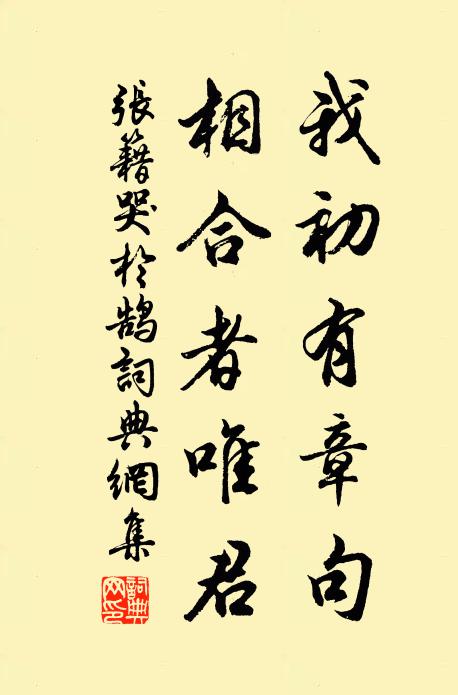 我初有章句
相合者唯君
張籍哭於鵠詞典網集
詞典网印